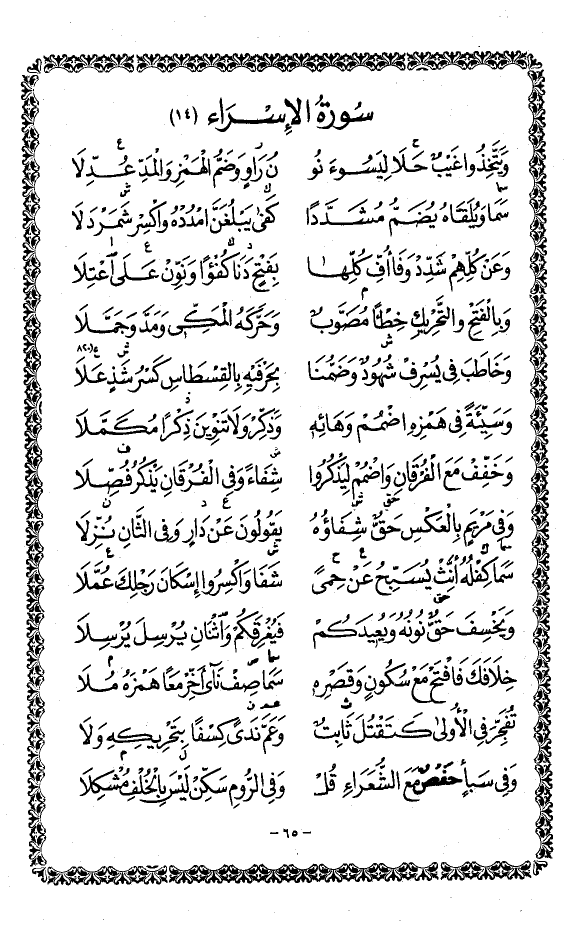 سُورَةُ الإِسْرَاء (١٤)
وَيَتَّخِذُوا غَيْبٌ حَلَا لِيَسُوءَ نُو نُ رَاوٍ وَضَمُّ الْهَمْزِ وَالْمَدِّ عُدِّلَا
سَمَا وَيُلَقَّاهُ يُضَمُّ مُشَدَّدًا كَفَى يَبْلُغَنَّ امْدُدْهُ وَاكْسِرْ شَمَرْدَلَا
وَعَنْ كُلِّهِمْ شَدِّدْ وَفَا أُفِّ كُلِّهَا بِفَتْحٍ دَنَا كُفْؤًا وَنَوِّنْ عَلَى اعْتِلَا
وَبِالْفَتْحِ وَالتَّحْرِيكِ خِطْأً مُصَوَّبٌ وَحَرَّكَهُ الْمَكِّي وَمَدَّ وَجَمَّلَا
وَخَاطَبَ فِي يُسْرِفْ شُهُودٌ وَضَمُّنَا بِحَرْفَيْهِ بِالْقِسْطَاسِ كَسْرُ شَذٍ عَلَا
وَسَيِّئَةً فِي هَمْزِهِ اضْمُمْ وَهَائِهِ وَذَكِّرْ وَلَا تَنْوِينَ ذِكْرًا مُكَمَّلَا
وَخَفِّفْ مَعَ الْفُرْقَانِ وَاضْمُمْ لِيَذْكُرُوا شِفَاءً وَفِي الْفُرْقَانِ يَذْكُرُ فُصِّلَا
وَفِي مَرْيَمٍ بِالْعَكْسِ حَقٌّ شِفَاؤُهُ يَقُولُونَ عَنْ دَارٍ وَفِي الثَّانِ نُزِّلَا
سَمَا كِفْلُهُ أَنِّثْ يُسَبِّحُ عَنْ حِمًى شَفَا وَاكْسِرُوا إِسْكَانَ رَجْلِكَ عُمَّلَا
وَيَخْسِفَ حَقٌّ نُونُهُ وَيُعِيدَكُمْ فَيُغْرِقَكُمْ وَاثْنَانِ يُرْسِلَ يُرْسِلَا
خِلَافَكَ فَافْتَحْ مَعْ سُكُونٍ وَقَصْرِهِ سَمَا صِفْ نَآى أَخِّرْ مَعًا هَمْزَهُ مُلَا
تُفَجِّرَ فِي الْأُولَى كَتَقْتُلَ ثَابِتٌ وَعَمَّ نَدًى كِسْفًا بِتَحْرِيكِهِ وَلَا
وَفِي سَبَأٍ حَفْصٌ مَعَ الشُّعَرَاءِ قُلْ وَفِي الرُّومِ سَكِّنْ لَيْسَ بِالْخُلْفِ مُشْكِلَا
- ٦٥ -